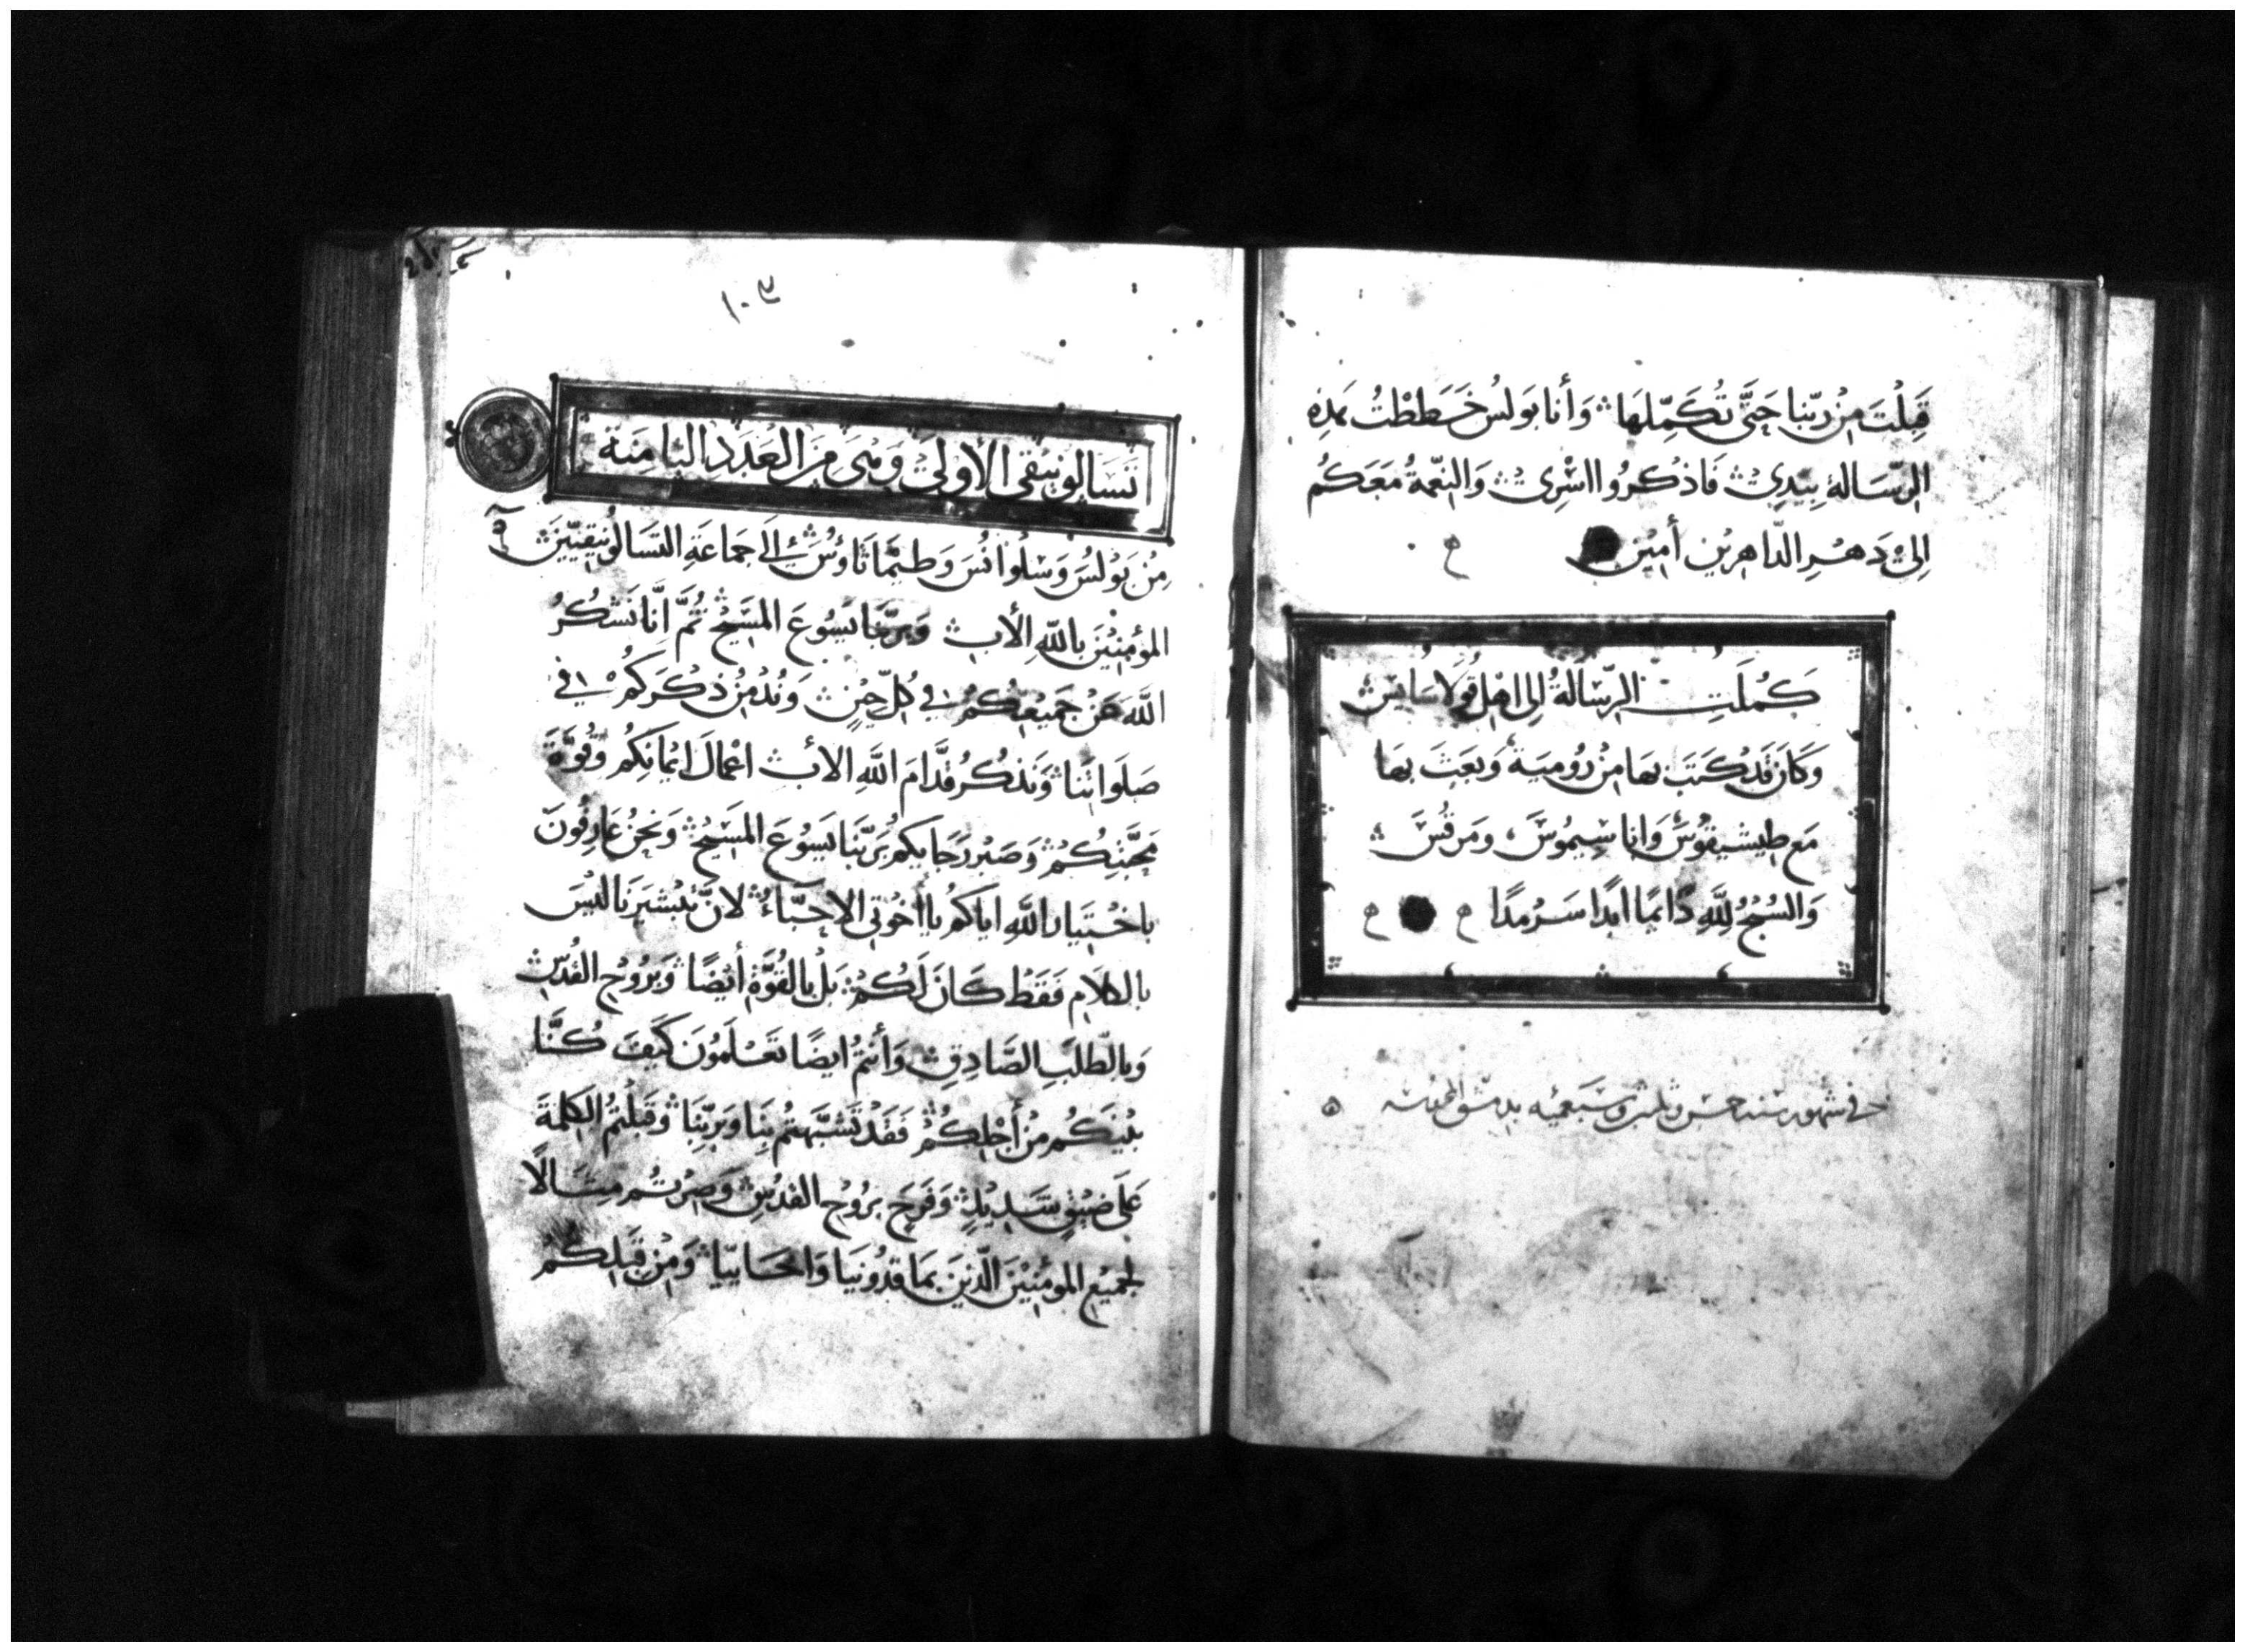 قَبِلْتَ مِنْ رَبّنا حَتَّى تُكَمِّلهَا وَأنا بَولسُ خَطَطْتُ هَذِهِ
الرّسَالة بِيَدِي فَاذكرُوا اسْرِي وَالنِعْمَةُ مَعَكُم
اِلىَ دَهْرِ الدّاهِرِين أمِين
كمُلَتِ الرّسَالَةُ اِلى اهْلِ قُولاسَايس
وَكانَ قَدْ كَتَبَ بهَا مِنْ رُومِيَة وَبَعَثَ بهَا
مَع طِيشيقوُسَ وَانا سِيمُوسَ ومَرقُسَ
وَالسُبْحُ لِلَّهِ دَايمًا ابَدًا سَرْمدًا
في شهور سنه خمس وثلثين وسبعميه بدمشق المحروسه
١٠٣
تَسَالونيقى الأولى وَهْىَ مِنَ العَدَدِ الثامِنَة
مِنْ بَوْلسَ وَسْلُوانُسَ وَطيمَاثاوُسَ اِلَى جمَاعَةِ التسَالُونيقِيّينَ
المؤمِنِيْنَ باللهِ الأب وَبرَبّنا يَسُوعَ المَسَيْحْ ثُمَّ اِنَّا نَشْكُرُ
اللَّهَ عَنْ جَمِيْعِكُمْ في كُلِّ حِيْنٍ وَنُدْمِنُ ذكرَكُمْ في
صَلَوَاتِنَا وَنَذكُرُ قُدَّامَ اللَّهِ الأب اعْمَالَ اِيمَانِكُم وَقُوَّةَ
مَحَبَّتِكُمْ وَصَبْرَ رَجَايكُم بُرَبِّنَا يَسُوعَ المَسِيْحْ وَنَحْنُ عَارِفُونَ
باخْتِيَارِ اللَّهِ اياكم يا اخْوُتِي الاحِبّاءُ لانَّ تبْشيرَنا ليْسَ
بالكلَامِ فقَطْ كانَ لَكُمْ بَلْ بالقُوَّةِ أيضًا وَبرُوْحِ القُدْسِ
وَبالطَّلَبِ الصَّادِقِ وَأَنتمُ ايضًا تَعْلَمُونَ كَيْفَ كُنَّا
بيْنَكُم مِنْ أجْلِكُمْ فَقَدْ تَشَبَّهْتُم بِنَا وَبرَبِّنَا وَقَبِلْتُمُ الكلِمَةَ
عَلَى ضِيْقٍ شَدِيْدٍ وَفَرَحِ برُوْحِ القدُسِ وَصِرْتُم مِثَالًا
لجَمِيْعِ المؤمِنِيْنَ الّذيْنَ بمَاقدُونيَا وَاخَايِيّا وَمِنْ قِبَلِكم